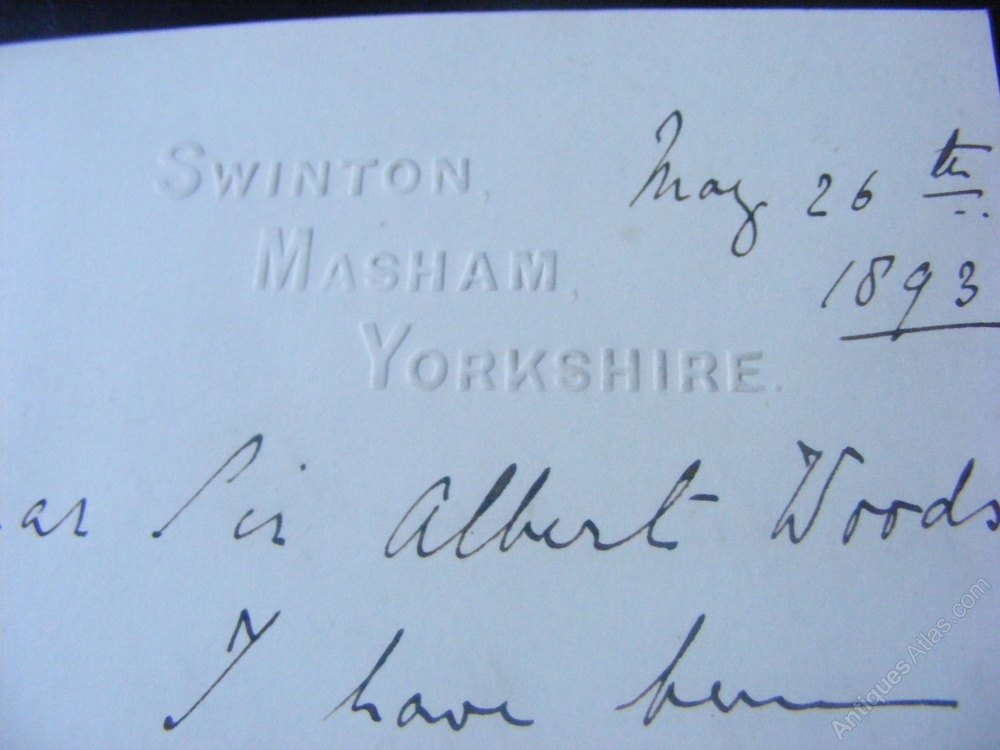 SWINTON,
MASHAM,
YORKSHIRE.
May 26th
1893
ear Sir Albert Woods
I have been
AntiquesAtlas.com